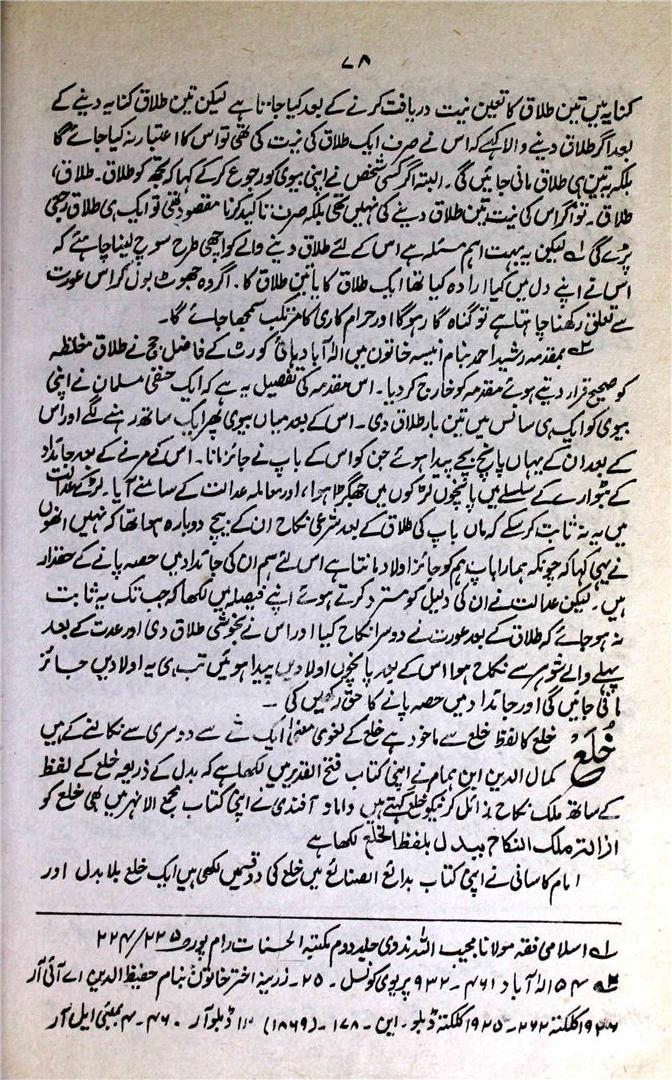 ۷۸
کنایہ میں تین طلاق کا تعین نیت دریافت کرنے کے بعد کیا جاتا ہے لیکن تین طلاق کنایہ دینے کے
بعد اگر طلاق دینے والا کہے کہ اس نے صرف ایک طلاق کی نیت کی تھی تو اس کا اعتبار نہ کیا جائے گا
بلکہ یہ تین ہی طلاق مانی جائیں گی۔ البتہ اگر کسی شخص نے اپنی بیوی کو رجوع کر کے کہا کہ تجھ کو طلاق۔ طلاق،
طلاق۔ تو اگر اس کی نیت تین طلاق دینے کی نہیں تھی بلکہ صرف تاکید کرنا مقصود تھی تو ایک ہی طلاق رجعی
پڑے گی ۱ے لیکن یہ بہت اہم مسئلہ ہے اس کے لئے طلاق دینے والے کو اچھی طرح سوچ لینا چاہئے کہ
اس نے اپنے دل میں کیا ارادہ کیا تھا ایک طلاق کا یا تین طلاق کا۔ اگر وہ جھوٹ بول کر اس عورت
سے تعلق رکھنا چاہتا ہے تو گناہ گار ہوگا اور حرام کاری کا مرتکب سمجھا جائے گا۔
۲ے بمقدمہ رشید احمد بنام انیسہ خاتون میں الہ آباد ہائی کورٹ کے فاضل جج نے طلاق مغلظہ
کو صحیح قرار دیتے ہوئے مقدمہ کو خارج کر دیا۔ اس مقدمہ کی تفصیل یہ ہے کہ ایک حنفی مسلمان نے اپنی
بیوی کو ایک ہی سانس میں تین بار طلاق دی۔ اس کے بعد میاں بیوی پھر ایک ساتھ رہنے لگے اور اس
کے بعد ان کے یہاں پانچ بچے پیدا ہوئے جن کو اس کے باپ نے جائز مانا۔ اس کے مرنے کے بعد جائداد
کے بٹوارے کے سلسلے میں پانچوں لڑکوں میں جھگڑا ہوا، اور معاملہ عدالت کے سامنے آیا۔ لڑکے عدالت
میں یہ نہ ثابت کر سکے کہ ماں باپ کی طلاق کے بعد شرعی نکاح ان کے بیچ دوبارہ ہوا تھا کہ نہیں انھوں
نے یہی کہا کہ چونکہ ہمارا باپ ہم کو جائز اولاد مانتا ہے اس لئے ہم ان کی جائداد میں حصہ پانے کے حقدار
ہیں۔ لیکن عدالت نے ان کی دلیل کو مسترد کرتے ہوئے اپنے فیصلہ میں لکھا کہ جب تک یہ ثابت
نہ ہو جائے کہ طلاق کے بعد عورت نے دوسرا نکاح کیا اور اس نے بخوشی طلاق دی اور عدت کے بعد
پہلے والے شوہر سے نکاح ہوا اس کے بعد پانچوں اولادیں پیدا ہوئیں تب ہی یہ اولادیں جائز
مانی جائیں گی اور جائداد میں حصہ پانے کا حق رکھیں گی۔
خُلع خلع کا لفظ خلع سے ماخوذ ہے خلع کے لغوی معنیٰ ایک شے سے دوسری سے نکالنے کے ہیں
کمال الدین ابن ہمام نے اپنی کتاب فتح القدیر میں لکھا ہے کہ بدل کے ذریعہ خلع کے لفظ
کے ساتھ ملک نکاح زائل کرنیکو خلع کہتے ہیں داماد آفندی نے اپنی کتاب مجمع الانہر میں بھی خلع کو
ازالۃ ملک النکاح ببدل بلفظ الخلع لکھا ہے
امام کاسانی نے اپنی کتاب بدائع الصنائع میں خلع کی دو قسمیں لکھی ہیں ایک خلع بلا بدل اور
۱ے اسلامی فقہ مولانا مجیب اللہ ندوی جلد دوم مکتبۃ الحسنات رام پور و ۲۲۵/۲۲۴
۲ے ۵۴ الہ آباد ۴۶۱ - ۹۳۲ پریوی کونسل۔ ۲۵۔ زرینہ اختر خاتون بنام حفیظ الدین اے آئی آر
۱۹۲۶ کلکتہ ۲۴۲ - ۱۹۲۵ کلکتہ ڈبلو۔ این۔ ۱۷۸۔ (۱۸۶۹) ۱۱ ڈبلو آر ۴۶۰۔ ۴ بمبئی ایل آر